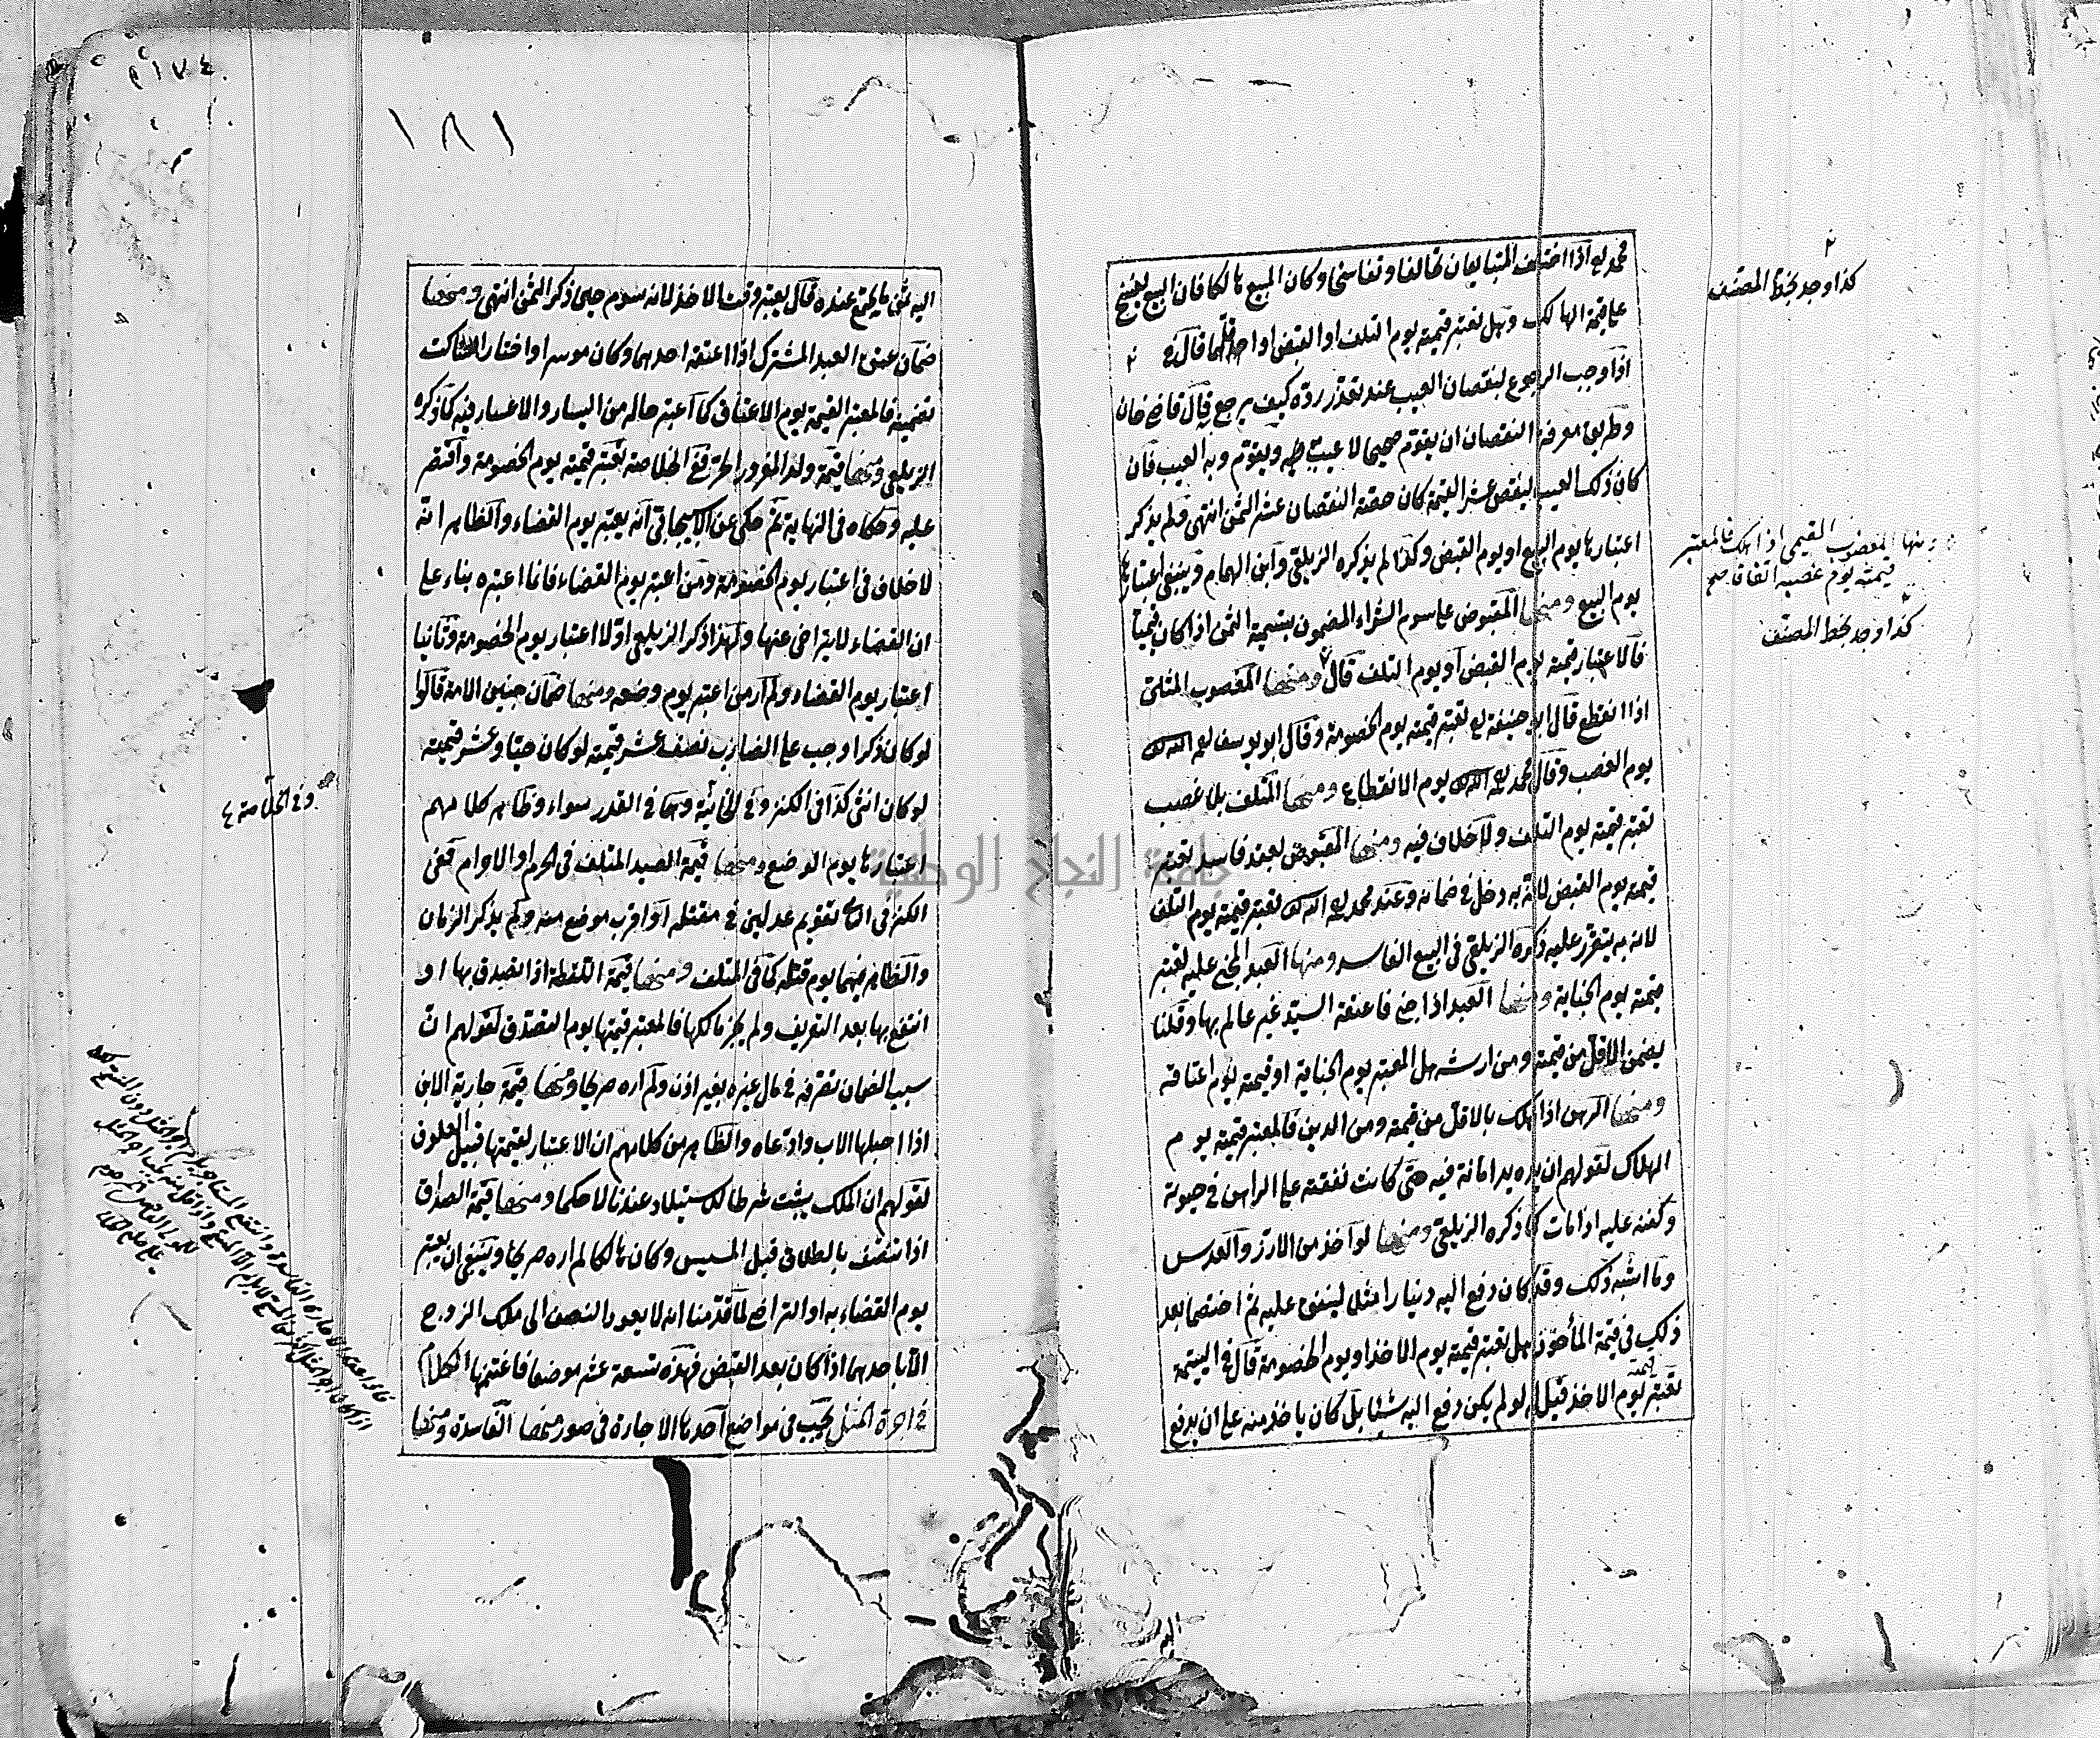 محمد رح اذا اختلف المتبايعان تحالفا وتفاسخا وكان المبيع هالكا فان البيع يفسخ
على قيمة الهالك وهل تعتبر قيمته يوم التلف او القبض او اقلهما قال
اذا وجب الرجوع بنقصان العيب عند تعذر رده كيف يرجع قال قاضي خان
وطريق معرفة النقصان ان يقوم صحيحا لا عيب به ويقوم وبه العيب فان
كان ذلك العيب ينقص عشر القيمة كان حصة النقصان عشر الثمن انتهى ولم يذكر
اعتبارها يوم البيع او يوم القبض وكذا لم يذكره الزيلعي وابن الهمام وينبغي اعتبارها
يوم البيع ومنها المقبوض على سوم الشراء المضمون بتسمية الثمن اذا كان قيميا
فالاعتبار قيمته يوم القبض او يوم التلف قال ومنها المغصوب المثلي
اذا انقطع قال ابو حنيفة رح تعتبر قيمته يوم الخصومة وقال ابو يوسف رحمه الله
يوم الغصب وقال محمد رحمه الله يوم الانقطاع ومنها المتلف بلا غصب
تعتبر قيمته يوم التلف ولا خلاف فيه ومنها المقبوض بعقد فاسد تعتبر
قيمته يوم القبض لانه به دخل في ضمانه وعند محمد رحمه الله تعتبر قيمته يوم التلف
لانه به يتقرر عليه ذكره الزيلعي في البيع الفاسد ومنها العبد المجني عليه تعتبر
قيمته يوم الجناية ومنها العبد اذا جنى فاعتقه السيد غير عالم بها وقلنا
يضمن الاقل من قيمته ومن ارشه هل المعتبر يوم الجناية او قيمته يوم اعتاقه
ومنها الرهن اذا هلك بالاقل من قيمته ومن الدين فالمعتبر قيمته يوم
الهلاك لقولهم ان يده يد امانة فيه حتى كانت نفقته على الراهن في حيوته
وكفنه عليه اذا مات كما ذكره الزيلعي ومنها لو اخذ من الارز والعدس
وما اشبه ذلك وقد كان دفع اليه دينارا مثلا لينفق عليه ثم اختصما بعد
ذلك في قيمة المأخوذ هل تعتبر قيمته يوم الاخذ او يوم الخصومة قال في اليتيمة
تعتبر قيمته يوم الاخذ قيل لو لم يكن دفع اليه شيئا بل كان ياخذ منه على ان يدفع
كذا وجد بخط المصنف
ومنها المغصوب القيمي اذا هلك فالمعتبر
قيمته يوم غصبه اتفاقا صح
كذا وجد بخط المصنف
١٨١
اليه ثمن ما يجتمع عنده قال يعتبر وقت الاخذ لانه سوم حين ذكر الثمن انتهى ومنها
ضمان عتق العبد المشترك اذا اعتقه احدهما وكان موسرا واختار الساكت
تضمينه فالمعتبر القيمة يوم الاعتاق كما اعتبر حاله من اليسار والاعسار فيه كما ذكره
الزيلعي ومنها قيمة ولد المغرور الحر ففي الخلاصة تعتبر قيمته يوم الخصومة واقتصر
عليه وحكاه في النهاية ثم حكى عن الاسبيجابي انه يعتبر يوم القضاء والظاهر ان
لا خلاف في اعتبار يوم الخصومة ومن اعتبر يوم القضاء فانما اعتبره بناء على
ان القضاء لا يتراخى عنها ولهذا ذكر الزيلعي اولا اعتبار يوم الخصومة وثانيا
اعتبار يوم القضاء ولم ار من اعتبر يوم وضعه ومنها ضمان جنين الامة قالوا
لو كان ذكرا وجب على الضارب نصف عشر قيمته لو كان حيا وعشر قيمته
لو كان انثى كذا في الكنز وفي الخانية وهما في القدر سواء وظاهر كلامهم
اعتبارها يوم الوضع ومنها قيمة الصيد المتلف في الحرم او الاحرام ففي
الكنز في الثاني بتقويم عدلين في مقتله او اقرب موضع منه ولم يذكر الزمان
والظاهر فيهما يوم قتله كما في المتلف ومنها قيمة اللقطة اذا تصدق بها او
انتفع بها بعد التعريف ولم يجز مالكها فالمعتبر قيمتها يوم التصدق لقولهم ان
سبب الضمان تصرفه في مال غيره بغير اذن ولم اره صريحا ومنها قيمة جارية الابن
اذا احبلها الاب وادعاه والظاهر من كلامهم ان الاعتبار لقيمتها قبيل العلوق
لقولهم ان الملك يثبت شرطا للاستيلاد عندنا لا حكما ومنها قيمة الصداق
اذا تنصف بالطلاق قبل المسيس وكان هالكا لم اره صريحا وينبغي ان يعتبر
يوم القضاء به او التراضي لما قدمنا انه لا يعود النصف الى ملك الزوج
الا باحدهما اذا كان بعد القبض فهذه تسعة عشر موضعا فاغتنمها الكلام
في اجرة المثل تجب في مواضع احدها الاجارة في صور منها الفاسدة ومنها